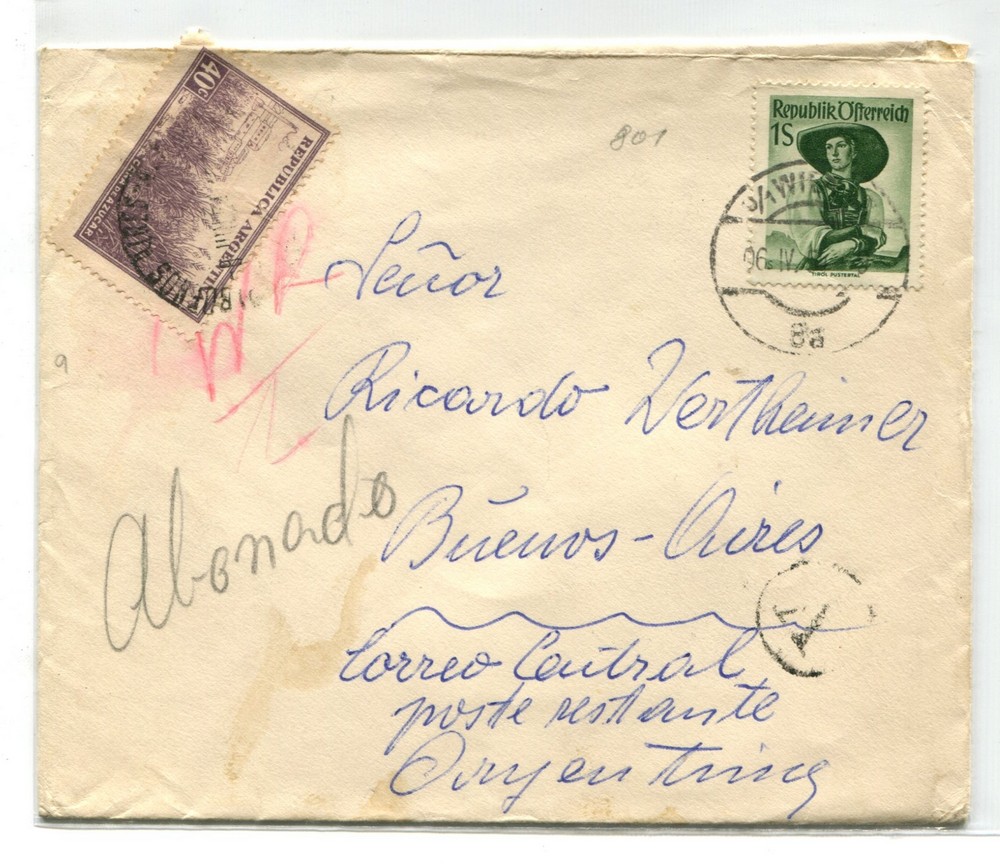 40c
REPUBLICA ARGENTINA
CAÑA DE AZUCAR
BUENOS AIRES
801
Republik Österreich
1S
TIROL PUSTERTAL
WIEN
IV
8a
Señor
Ricardo Wertheimer
9
Abonado
Buenos-Aires
Correo Central
poste restante
Argentina